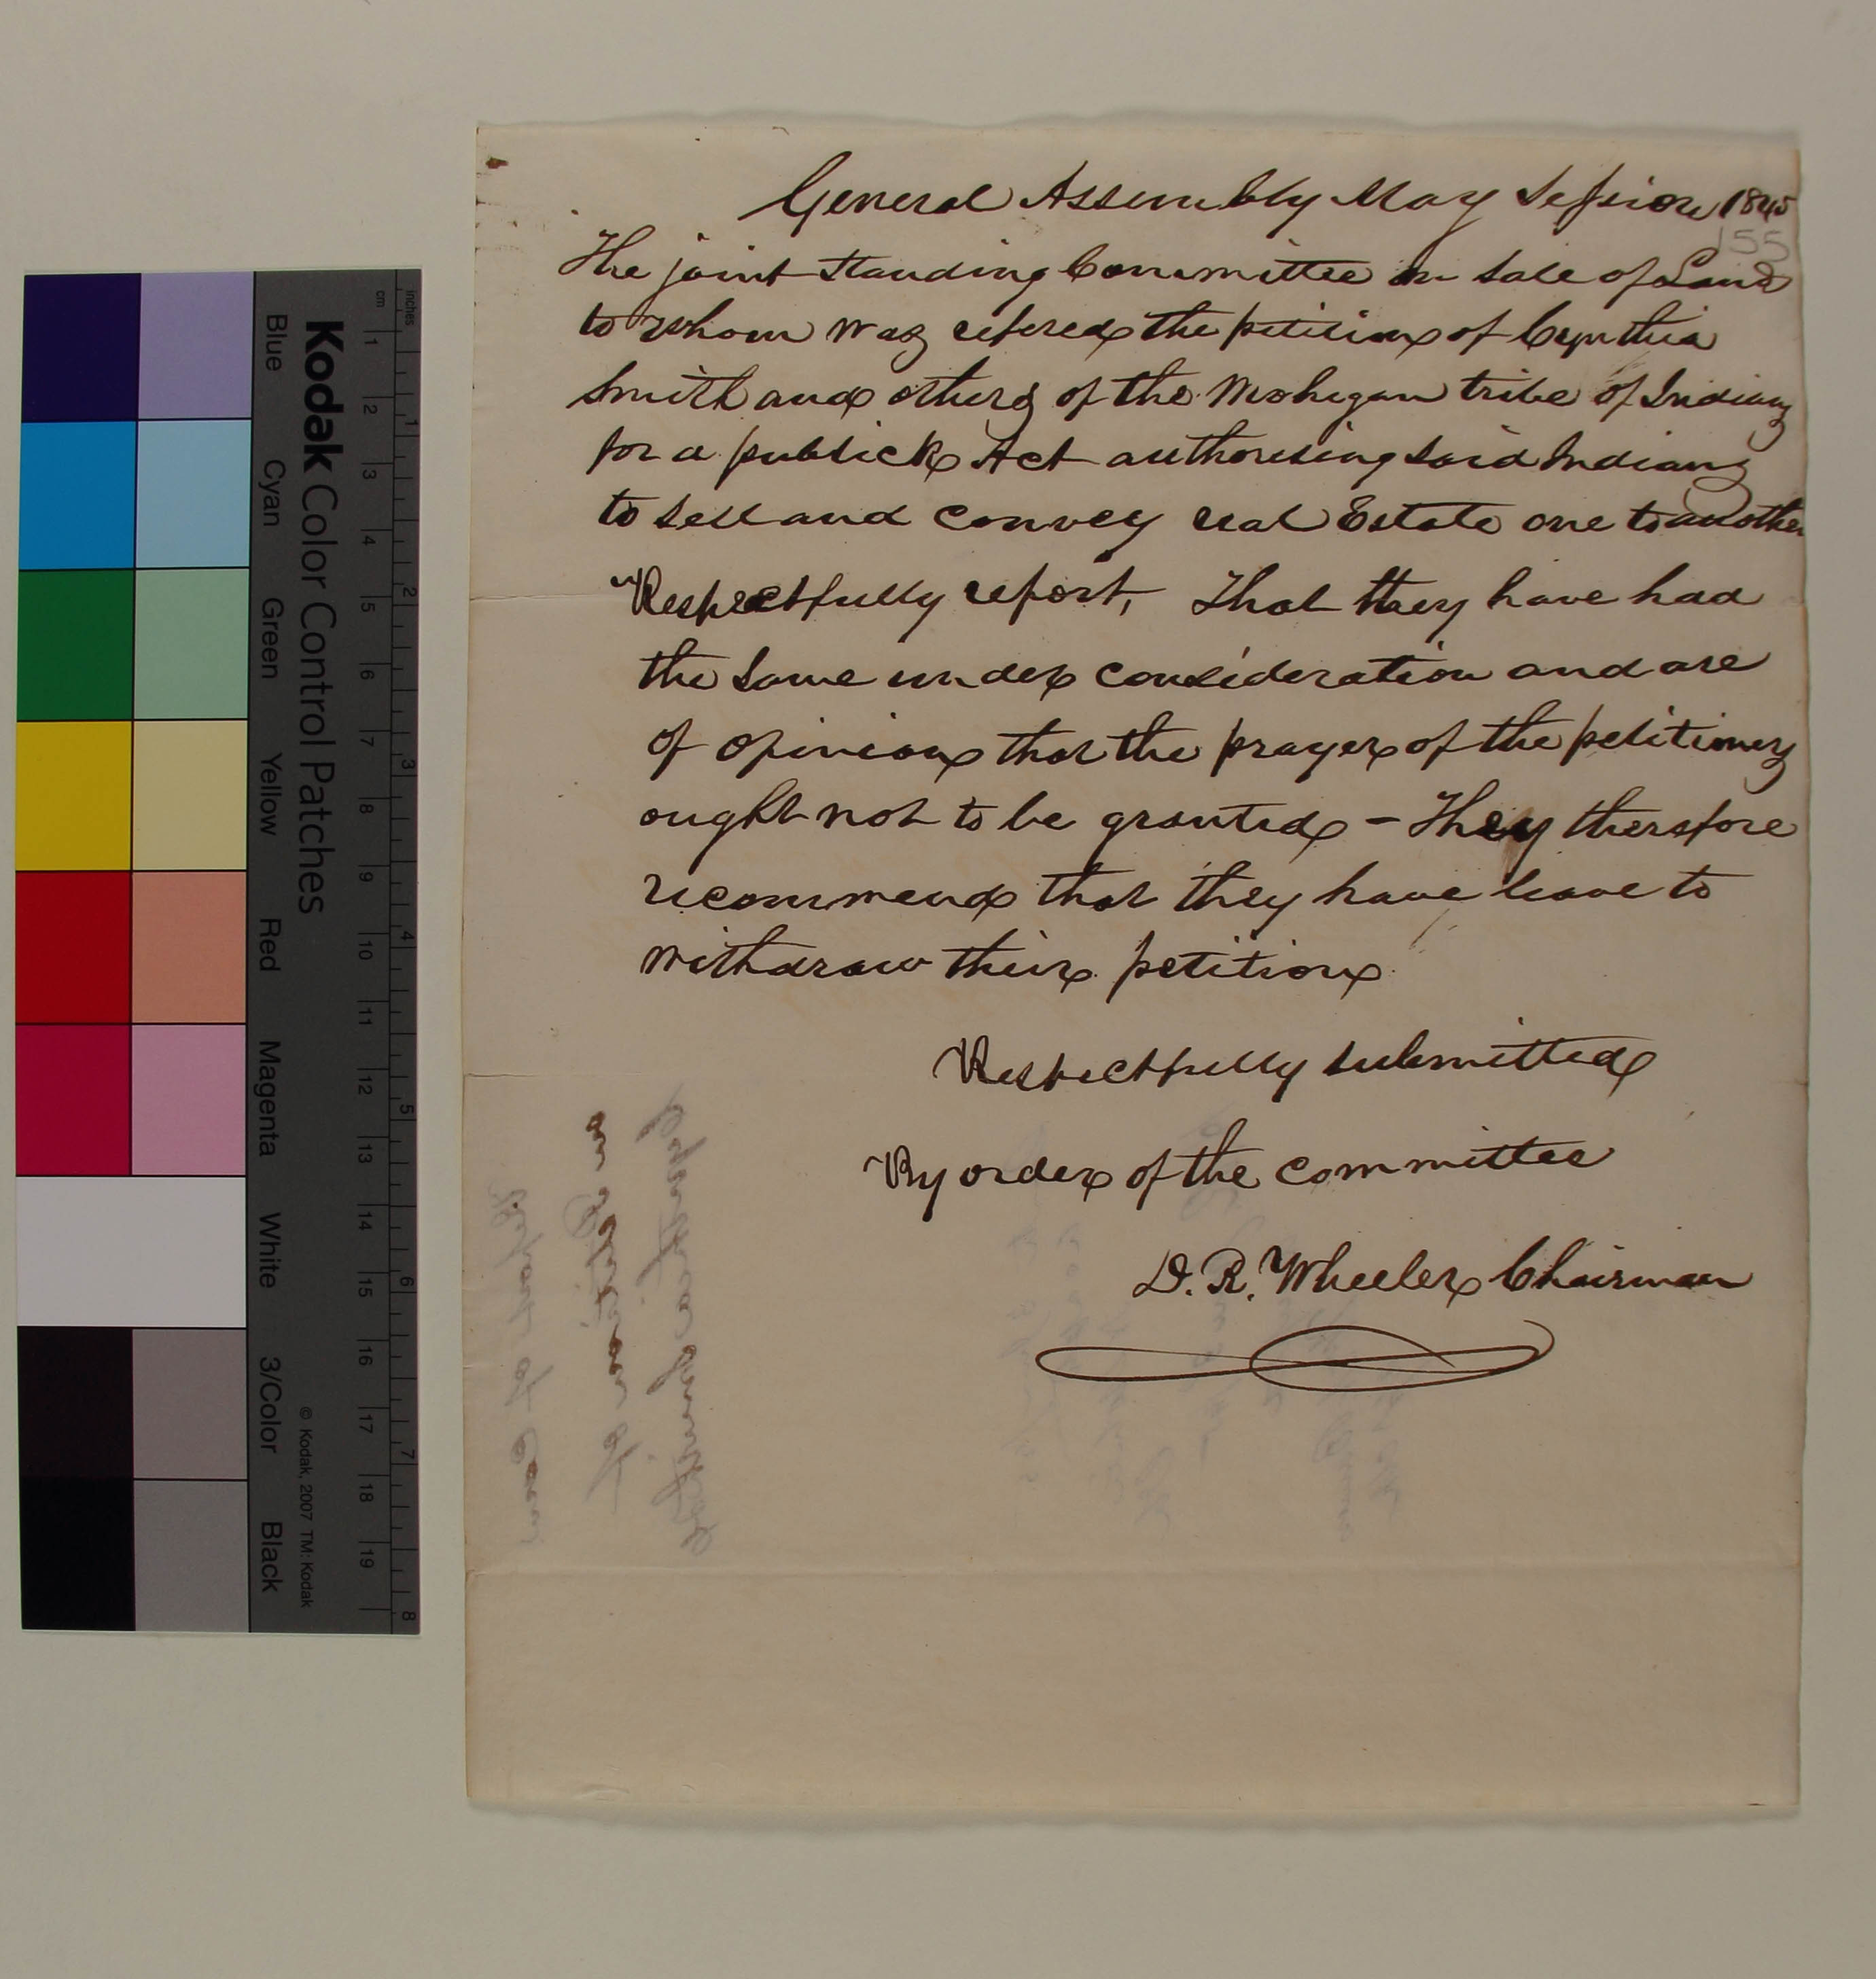 General Assembly May Session 1845
155
The joint standing Committee on Sale of Land
to whom was refered the petition of Cynthia
Smith and others of the Mohegan tribe of Indians
for a publick Act authorising said Indians
to sell and convey real Estate one to another
Respectfully report, That they have had
the same under consideration and are
of opinion that the prayer of the petitioners
ought not to be granted – They therefore
recommend that they have leave to
withdraw their petition
Respectfully submitted
By order of the committee
D. R. Wheeler Chairman
Kodak Color Control Patches
© Kodak, 2007 TM: Kodak
Blue
Cyan
Green
Yellow
Red
Magenta
White
3/Color
Black
cm 1 2 3 4 5 6 7 8 9 10 11 12 13 14 15 16 17 18 19
inches 1 2 3 4 5 6 7 8